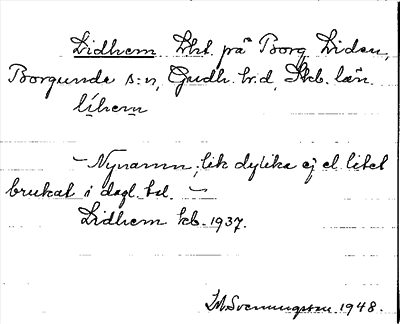 Lidhem Lht. på Borg Lidan,
Borgunda s:n, Gudh. hrd., Skb. län.
líhem
— Nynamn, lik dylika ej el. litet
brukat i dagl. tal. —
Lidhem kb. 1937.
1948.